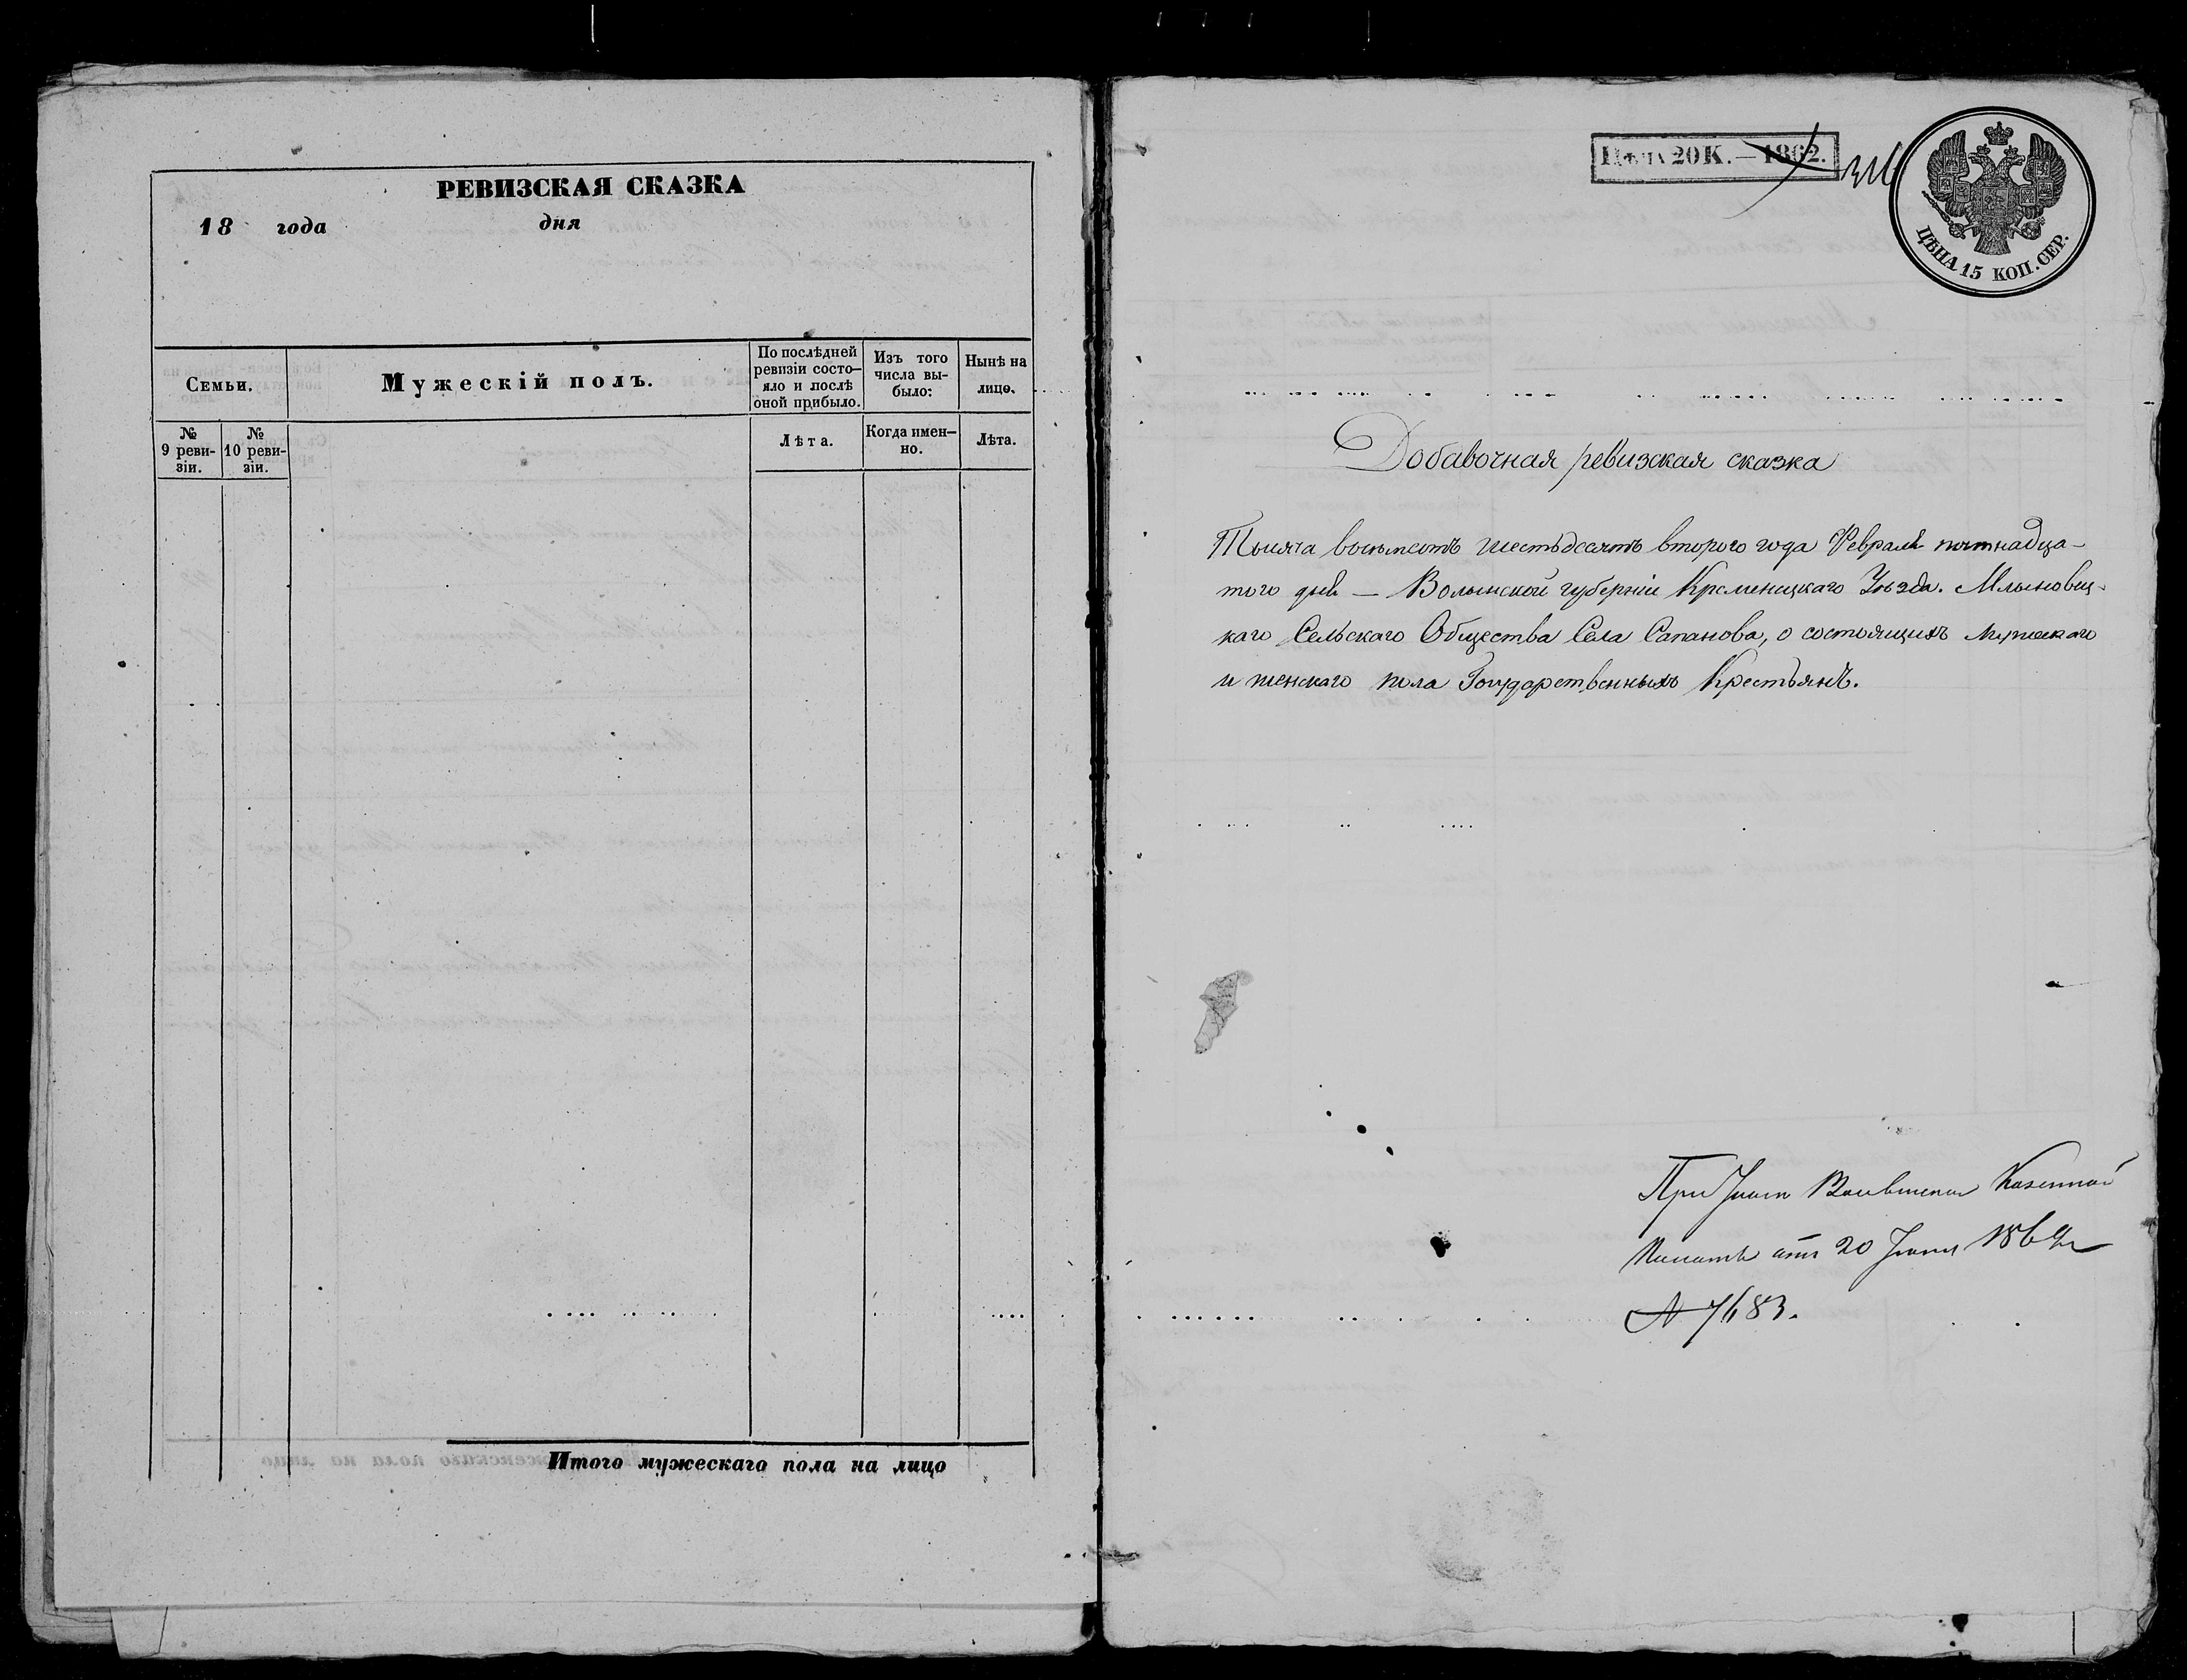 РЕВИЗСКАЯ СКАЗКА
18 года дня
Семьи.
Мужескій полъ.
По послѣдней ревизіи состо-
яло и послѣ оной прибыло.
Изъ того числа вы-
было:
Нынѣ на лицо.
№ 9 реви-
зіи.
№ 10 реви-
зіи.
Лѣта.
Когда имен-
но.
Лѣта.
Итого мужескаго пола на лицо
Цѣна 20 К. — 1862.
ЦѢНА 15 КОП. СЕР.
Добавочная ревизская сказка
Тысяча восемьсотъ шестьдесятъ второго года Февраля пятнадца-
того дня — Волынской губерніи Кременецкаго Уѣзда. Млыновец-
каго Сельскаго Общества Села Сапанова, о состоящихъ мужескаго
и женскаго пола Государственныхъ Крестьянъ.
При Указѣ Казенной
Палаты отъ 20 186
№ 7683.